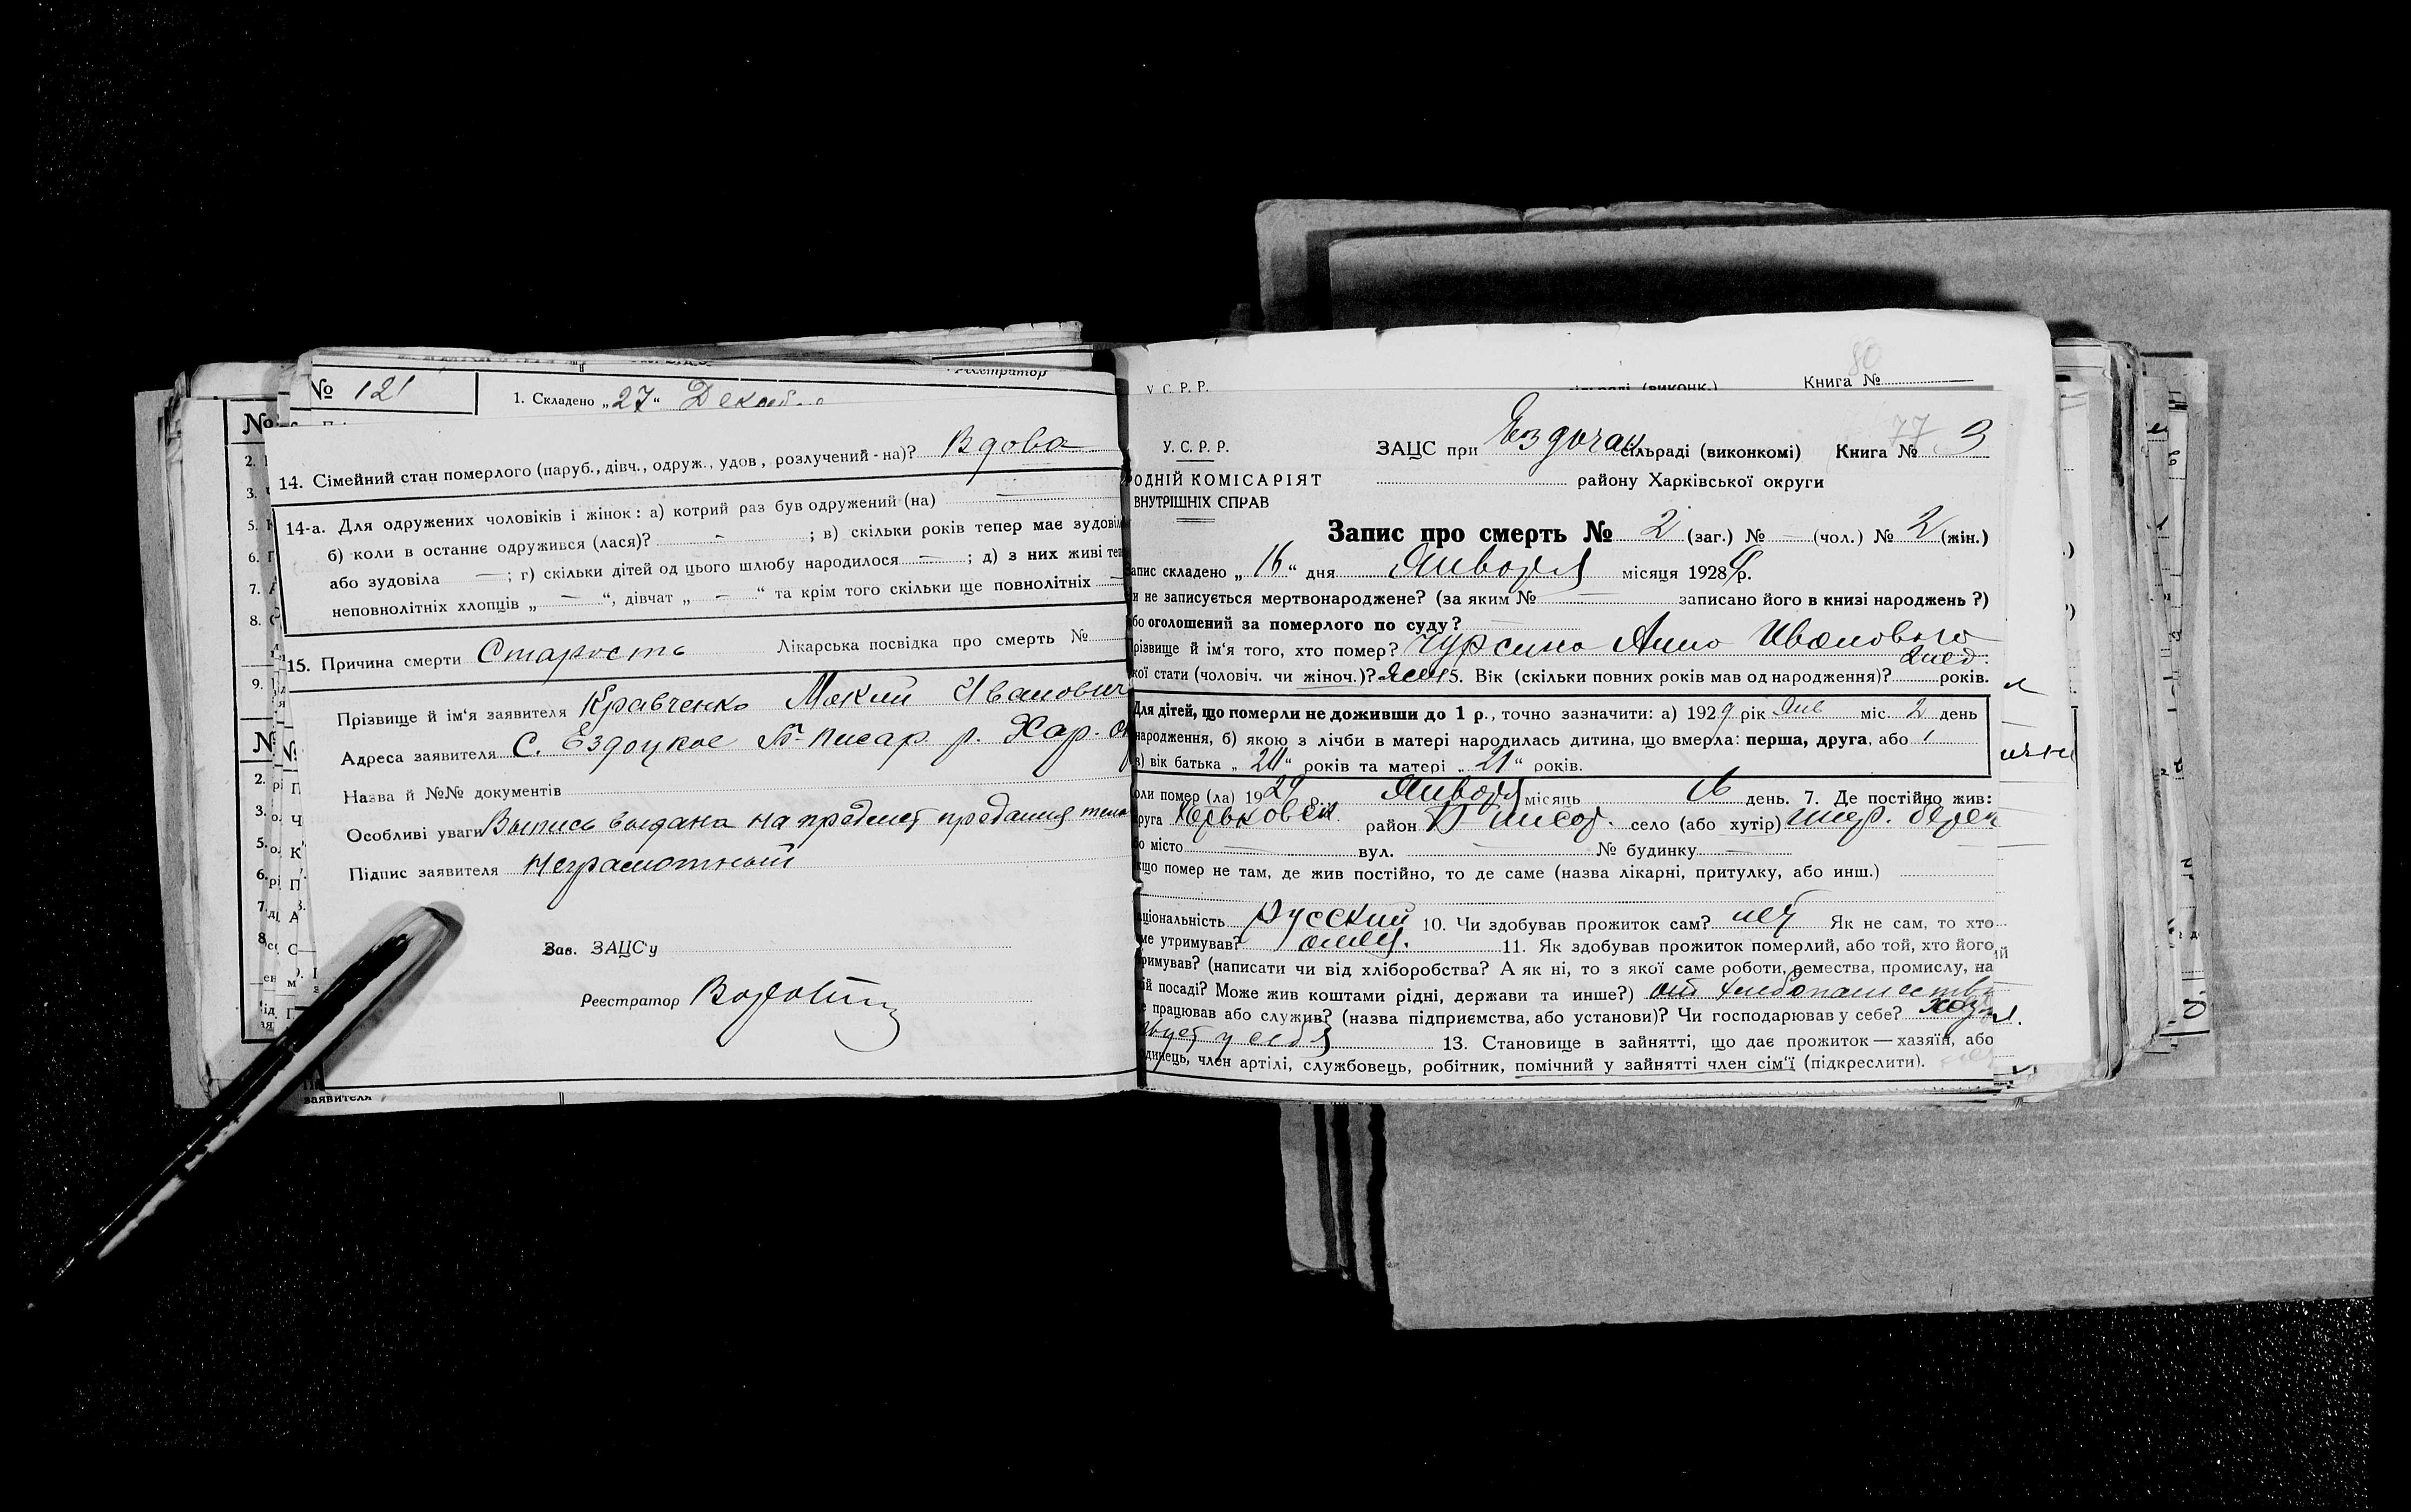 № 121
1. Складено „27“
14. Сімейний стан померлого (паруб., дівч., одруж., удов, розлучений-на)? Вдова
14-а. Для одружених чоловіків і жінок: а) котрий раз був одружений (на) —
б) коли в останнє одружився (лася)? - ; в) скільки років тепер має
або зудовіла — ; г) скільки дітей од цього шлюбу народилося — ; д) з них живі
неповнолітніх хлопців „ — “, дівчат „ — “ та крім того скільки ще повнолітніх —
15. Причина смерти Старость Лікарська посвідка про смерть №
Прізвище й ім‘я заявителя Кравченко Мокий Иванович
Адреса заявителя с. Ездоцкое Б-Писар. р. Хар.
Назва й №№ документів
Особливі уваги Выпись выдана на предмет предания
Підпис заявителя Неграмотный
Зав. ЗАЦС'у
Реєстратор
заявителя
Реєстратор
У. С. Р. Р.
Книга №
80
У. С. Р. Р.
ЗАЦС при Ездочан сільраді (виконкомі) Книга № 3
77
ОДНІЙ КОМІСАРІЯТ
району Харківської округи
ВНУТРІШНІХ СПРАВ
Запис про смерть № 2 (заг.) № — (чол.) № 2 (жін.)
апис складено „ 16 “ дня Января місяця 1928 9 р.
и не записується мертвонароджене? (за яким № — записано його в книзі народжень ?)
бо оголошений за померлого по суду?
різвище й ім‘я того, хто помер? Чурсина Анна Ивановна
кої стати (чоловіч. чи жіноч.)? жен 5. Вік (скільки повних років мав од народження)? 2 нед. років.
Для дітей, що померли не доживши до 1 р., точно зазначити: а) 1929 рік Янв міс. 2 день
народження, б) якою з лічби в матері народилась дитина, що вмерла: перша, друга, або 1
в) вік батька „ “ років та матері „ 21 “ років.
оли помер (ла) 1929 Января місяць 16 день. 7. Де постійно жив:
руга Харьковск. район Б Писар. село (або хутір)
о місто — вул. — № будинку —
кщо помер не там, де жив постійно, то де саме (назва лікарні, притулку, або инш.)
аціональність русский 10. Чи здобував прожиток сам? нет Як не сам, то хто
ме утримував? отец. 11. Як здобував прожиток померлий, або той, хто його
римував? (написати чи від хліборобства? А як ні, то з якої саме роботи, ремества, промислу, на
ій посаді? Може жив коштами рідні, держави та инше?) от хлебопашества
е працював або служив? (назва підприємства, або установи)? Чи господарював у себе?
у себя 13. Становище в зайнятті, що дає прожиток — хазяїн, або
динець, член артілі, службовець, робітник, помічний у зайнятті член сім‘ї (підкреслити).